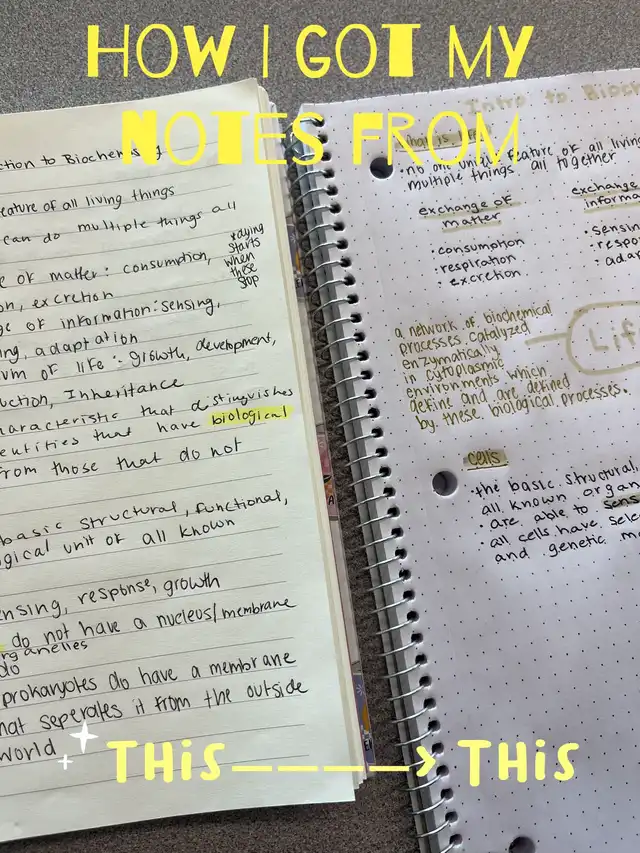 HOW I GOT MY
NOTES FROM
ction to Biochemistry
eature of all living things
can do multiple things all
e of matter: consumption,
on, excretion
dying
starts
when
these
stop
ge of information: sensing,
ing, adaptation
um of life: growth, development,
uction, Inheritance
haracteristic that distinguishes
entities that have biological
from those that do not
basic structural, functional,
ogical unit of all known
ensing, response, growth
do not have a nucleus/membrane
organelles
do
prokaryotes do have a membrane
hat seperates it from the outside
world
Intro to Bioch
what is life?
• no one unit feature of all living
multiple things all together
exchange of
matter
• consumption
• respiration
• excretion
exchange
informa
• sensin
• respo
• adap
a network of biochemical
processes catalyzed
enzymatically
in cytoplasmic
environments which
define and are defined
by these biological processes.
Lif
cells
• the basic structural
all known organ
• are able to sens
• all cells have sele
and genetic ma
THIS————> THIS